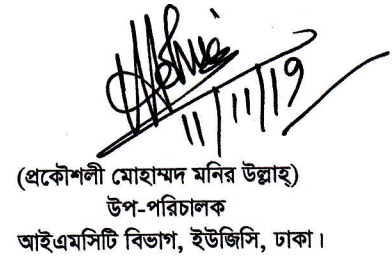 11/11/19
(প্রকৌশলী মোহাম্মদ মনির উল্লাহ্)
উপ-পরিচালক
আইএমসিটি বিভাগ, ইউজিসি, ঢাকা।